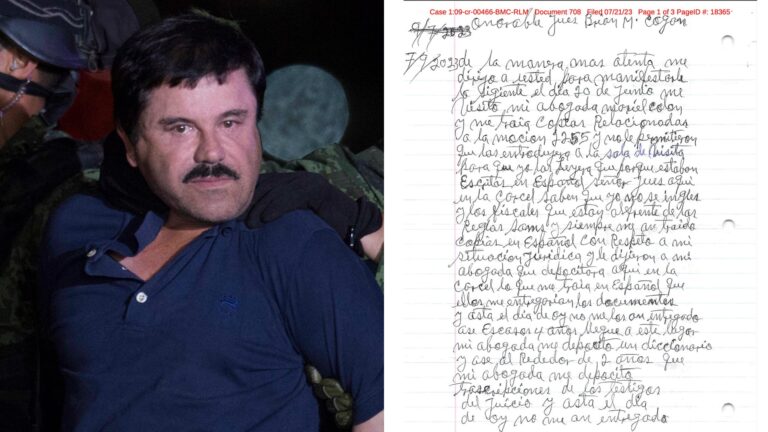 Case 1:09-cr-00466-BMC-RLM Document 708 Filed 07/21/23 Page 1 of 3 PageID #: 18365
9/7/2023 Onorable Jues Brian M. Cogan
7/9/2023 de la manera mas atenta me
dirijo a usted para manifestarle
lo sigiente el dia 20 de Junio me
visito mi abogada mariel colon
y me traia Copias Relacionadas
a la mocion 2255 y no le permitieron
que las introdujera a la sala de Visita
para que yo las Leyera que porque estaban
Escritas en Español señor Jues aqui
en la Carcel saben que yo no se ingles
y los fiscales que estan al frente de las
Reglas Sams y siempre me an traido
copias en Español Con Respeto a mi
situacion Juridica y le dijeron a mi
abogada que depocitara aqui en la
carcel lo que me traia en Español que
ellos me entregarian los documentos
y asta el dia de oy no me los an entregado
ase Escasos 4 años llegue a este lugar
mi abogada me depocito un diccionario
y ase al Rededor de 2 años que
mi abogada me depocito
trascripciones de los testigos
del Juicio y asta el dia
de oy no me an entregado